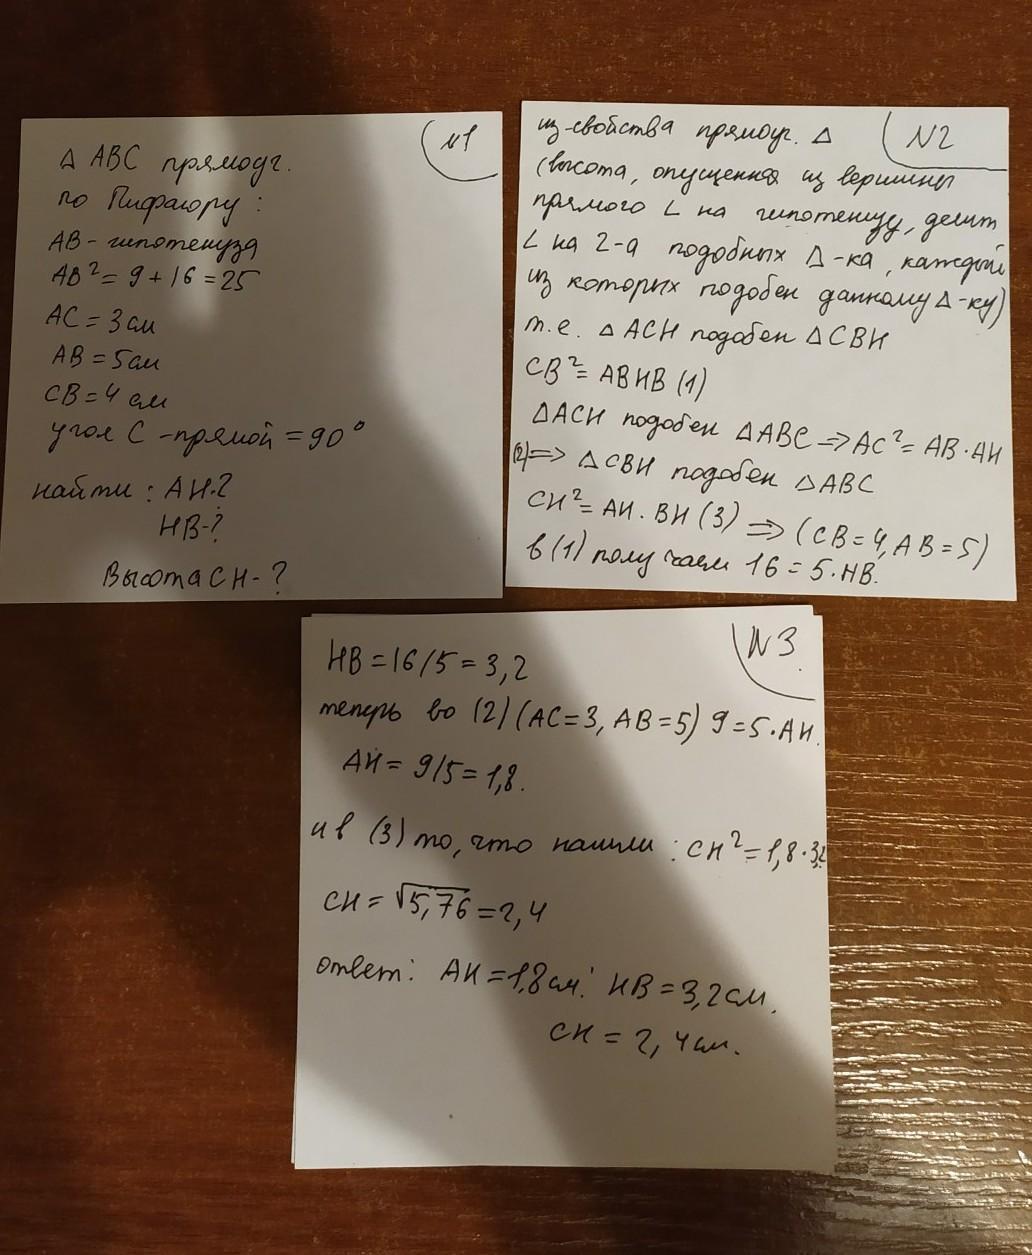 N1
Δ ABC прямоуг.
по Пифагору :
AB - гипотенуза
AB² = 9 + 16 = 25
AC = 3 см
AB = 5 см
CB = 4 см
угол C - прямой = 90°
найти : AH-?
HB-?
Высота CH - ?
N2
из свойства прямоуг. Δ
(высота, опущенная из вершины
прямого ∠ на гипотенузу, делит
∠ на 2-а подобных Δ-ка, каждый
из которых подобен данному Δ-ку)
т.е. Δ ACH подобен Δ CBH
CB² = ABHB (1)
ΔACH подобен ΔABC => AC² = AB·AH
(2) => ΔCBH подобен ΔABC
CH² = AH·BH (3) => (CB=4, AB=5)
в (1) получаем 16 = 5·HB.
N3.
HB = 16/5 = 3,2
теперь во (2) (AC=3, AB=5) 9=5·AH.
AH = 9/5 = 1,8.
и в (3) то, что нашли : CH² = 1,8·3,2
CH = √5,76 = 2,4
ответ: AH = 1,8 см. HB = 3,2 см.
CH = 2,4 см.